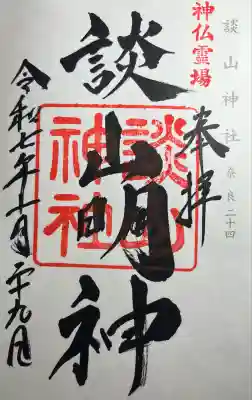 談山神社 奈良二十四
神仏霊場
奉拝
談山明神
談山
神社
令和七年十一月二十九日